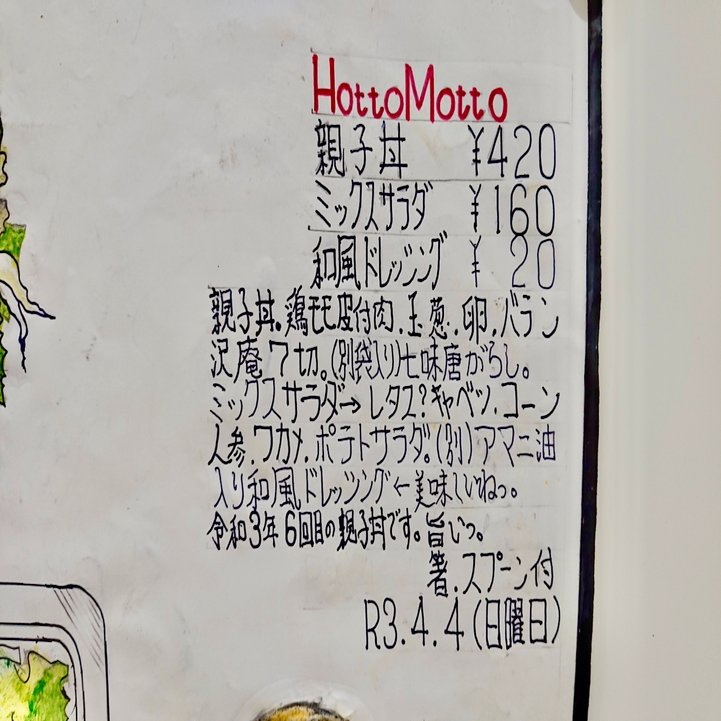 HottoMotto
親子丼 ¥420
ミックスサラダ ¥160
和風ドレッシング ¥ 20
親子丼。鶏モモ皮付肉.玉葱.卵.バラン
沢庵7切。(別袋入り)七味唐がらし。
ミックスサラダ→レタス?キャベツ.コーン
人参.ワカメ.ポテトサラダ。(別)アマニ油
入り和風ドレッシング←美味しいねっ。
令和3年6回目の親子丼です。旨いっ。
箸.スプーン付
R3.4.4(日曜日)